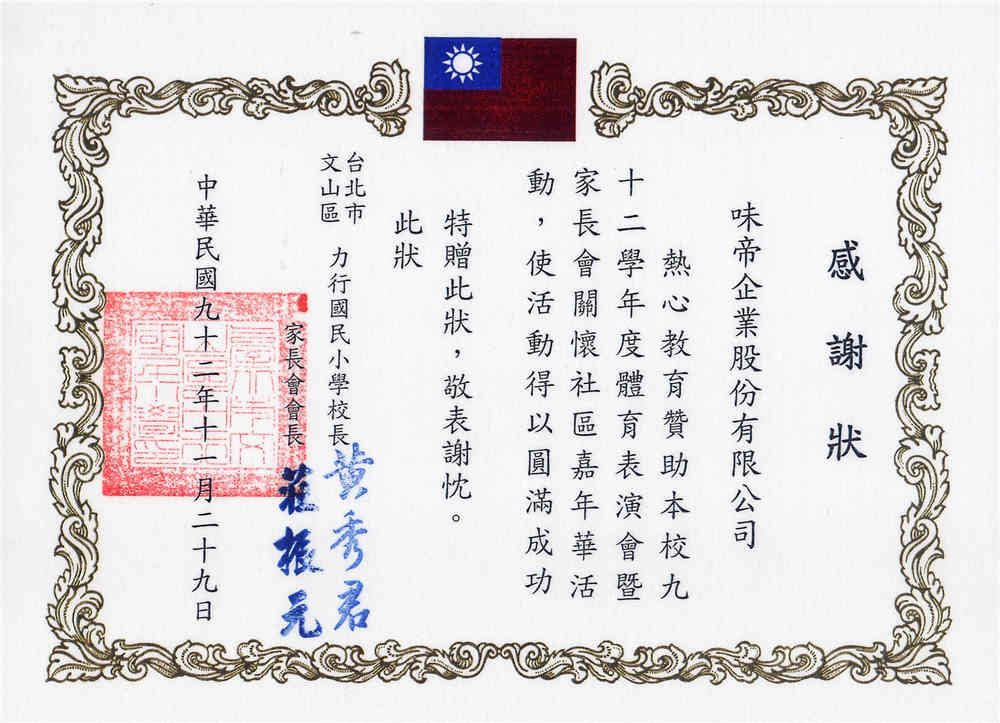 感謝狀
味帝企業股份有限公司
熱心教育贊助本校九
十二學年度體育表演會暨
家長會關懷社區嘉年華活
動，使活動得以圓滿成功
特贈此狀，敬表謝忱。
此狀
台北市
文山區
力行國民小學校長 黃秀君
家長會會長 莊振元
中華民國九十二年十一月二十九日